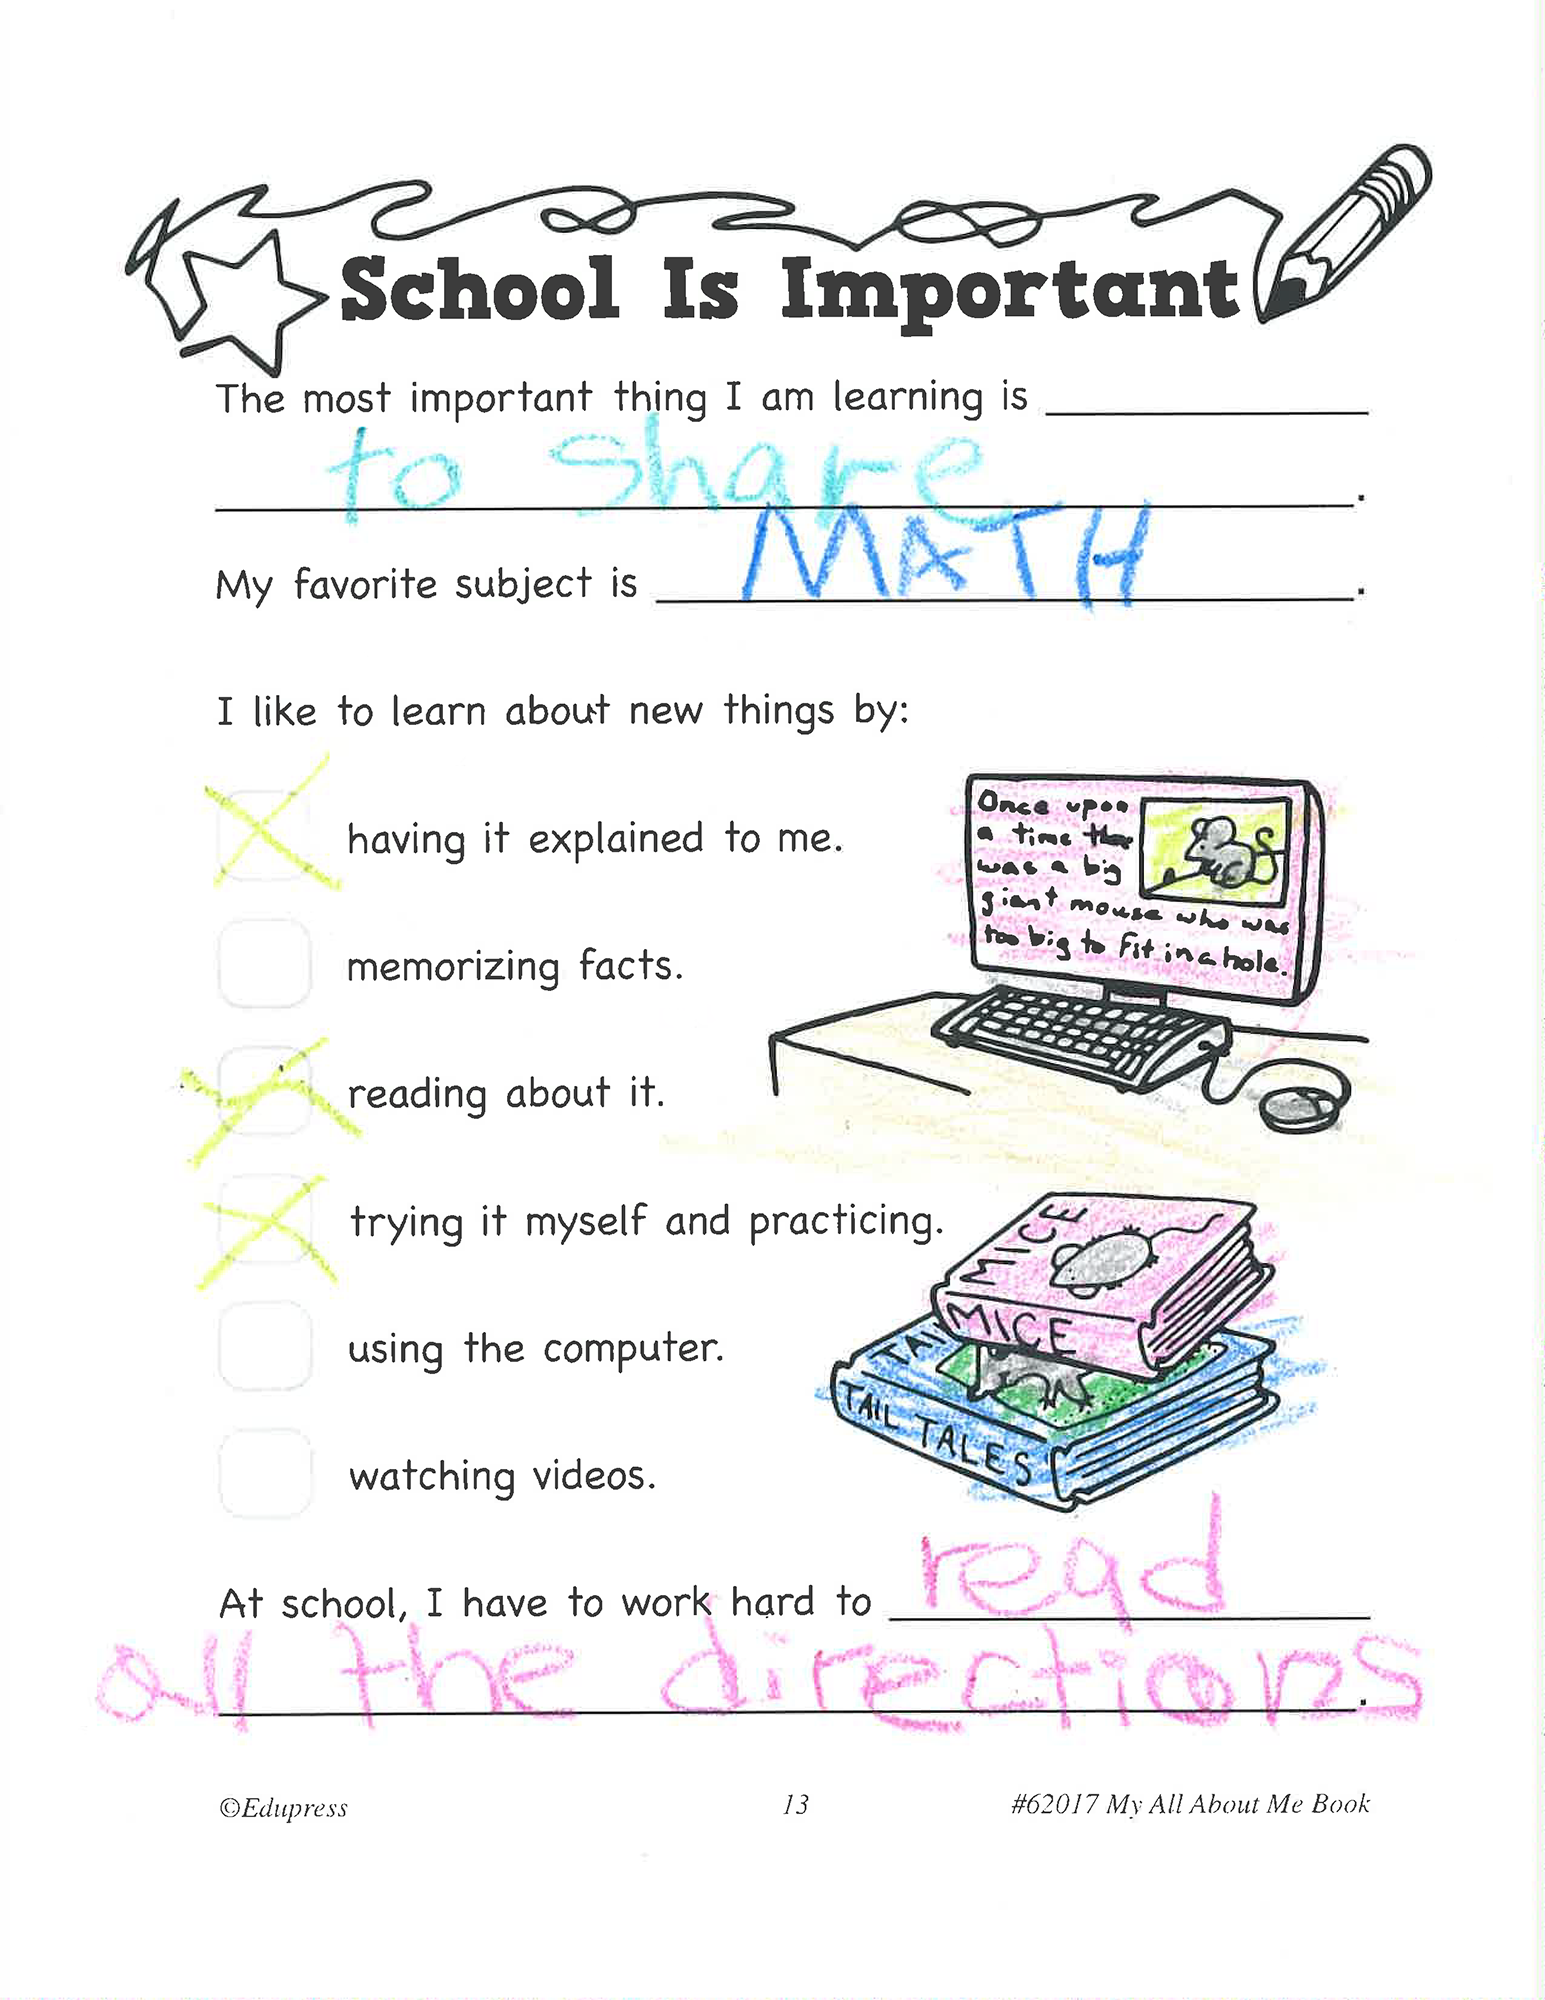 School Is Important
The most important thing I am learning is
to share.
My favorite subject is MATH.
I like to learn about new things by:
having it explained to me.
memorizing facts.
reading about it.
trying it myself and practicing.
using the computer.
watching videos.
Once upon
a time ther
was a big
giant mouse who was
too big to fit in a hole.
MICE
MICE
TAIL
TAIL TALES
At school, I have to work hard to read
all the directions.
©Edupress
13
#62017 My All About Me Book